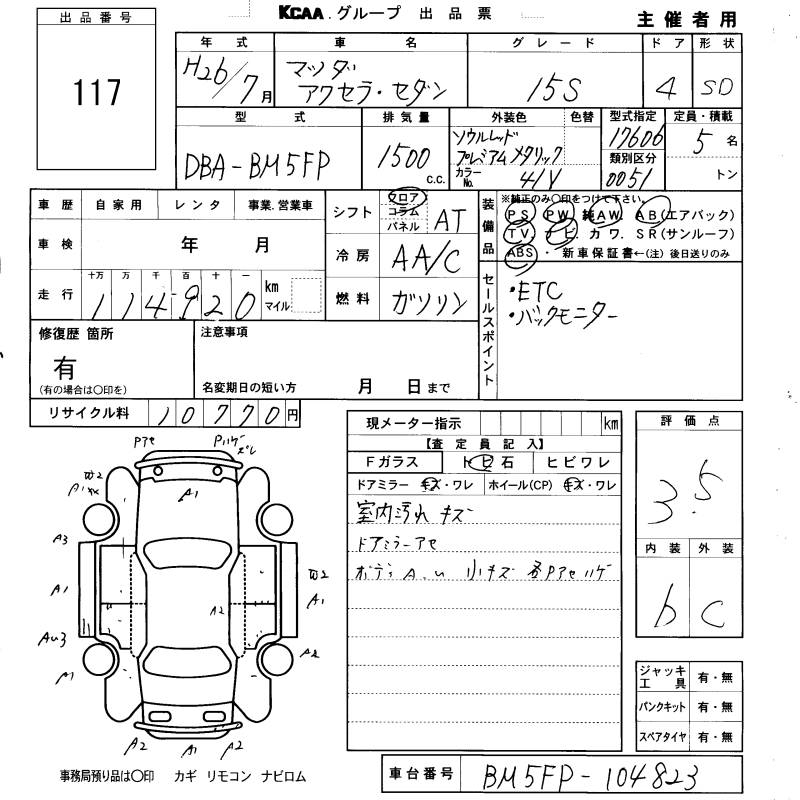 KCAA.グループ 出品票
主催者用
出品番号
117
年式 車名 グレード ドア 形状
H26/7月 マツダ アクセラ・セダン 15S 4 SD
型式 排気量 外装色 色替 型式指定 定員・積載
DBA-BM5FP 1500 C.C. ソウルレッド プレミアムメタリック 17606 5名
カラーNo. 41V 類別区分 0051 トン
車歴 自家用 レンタ 事業.営業車
車検 年 月
走行 十万 万 千 百 十 一
114920 km マイル
シフト フロア コラム パネル AT
冷房 AA/C
燃料 ガソリン
装備品 ※純正のみ〇印をつけて下さい。
PS PW 純AW AB(エアバック)
TV ナビ. カワ. SR(サンルーフ)
ABS ・ 新車保証書←(注)後日送りのみ
セールスポイント
・ETC
・バックモニター
修復歴 箇所
有
(有の場合は〇印を)
注意事項
名変期日の短い方 月 日まで
リサイクル料 10770円
現メーター指示 km
【査定員記入】
Fガラス トビ石 ヒビワレ
ドアミラー キズ・ワレ ホイール(CP) キズ・ワレ
室内汚れ キズ
ドアミラーアセ
ボディ A.U 小キズ 各Pアセハゲ
評価点
3.5
内装 外装
b C
Pアセ Pハゲ ズレ
A1
A3
A1
AU3
A1
A2
A1
A2
A2 A1 A2
ジャッキ工具 有・無
パンクキット 有・無
スペアタイヤ 有・無
事務局預り品は〇印 カギ リモコン ナビロム
車台番号 BM5FP-104823